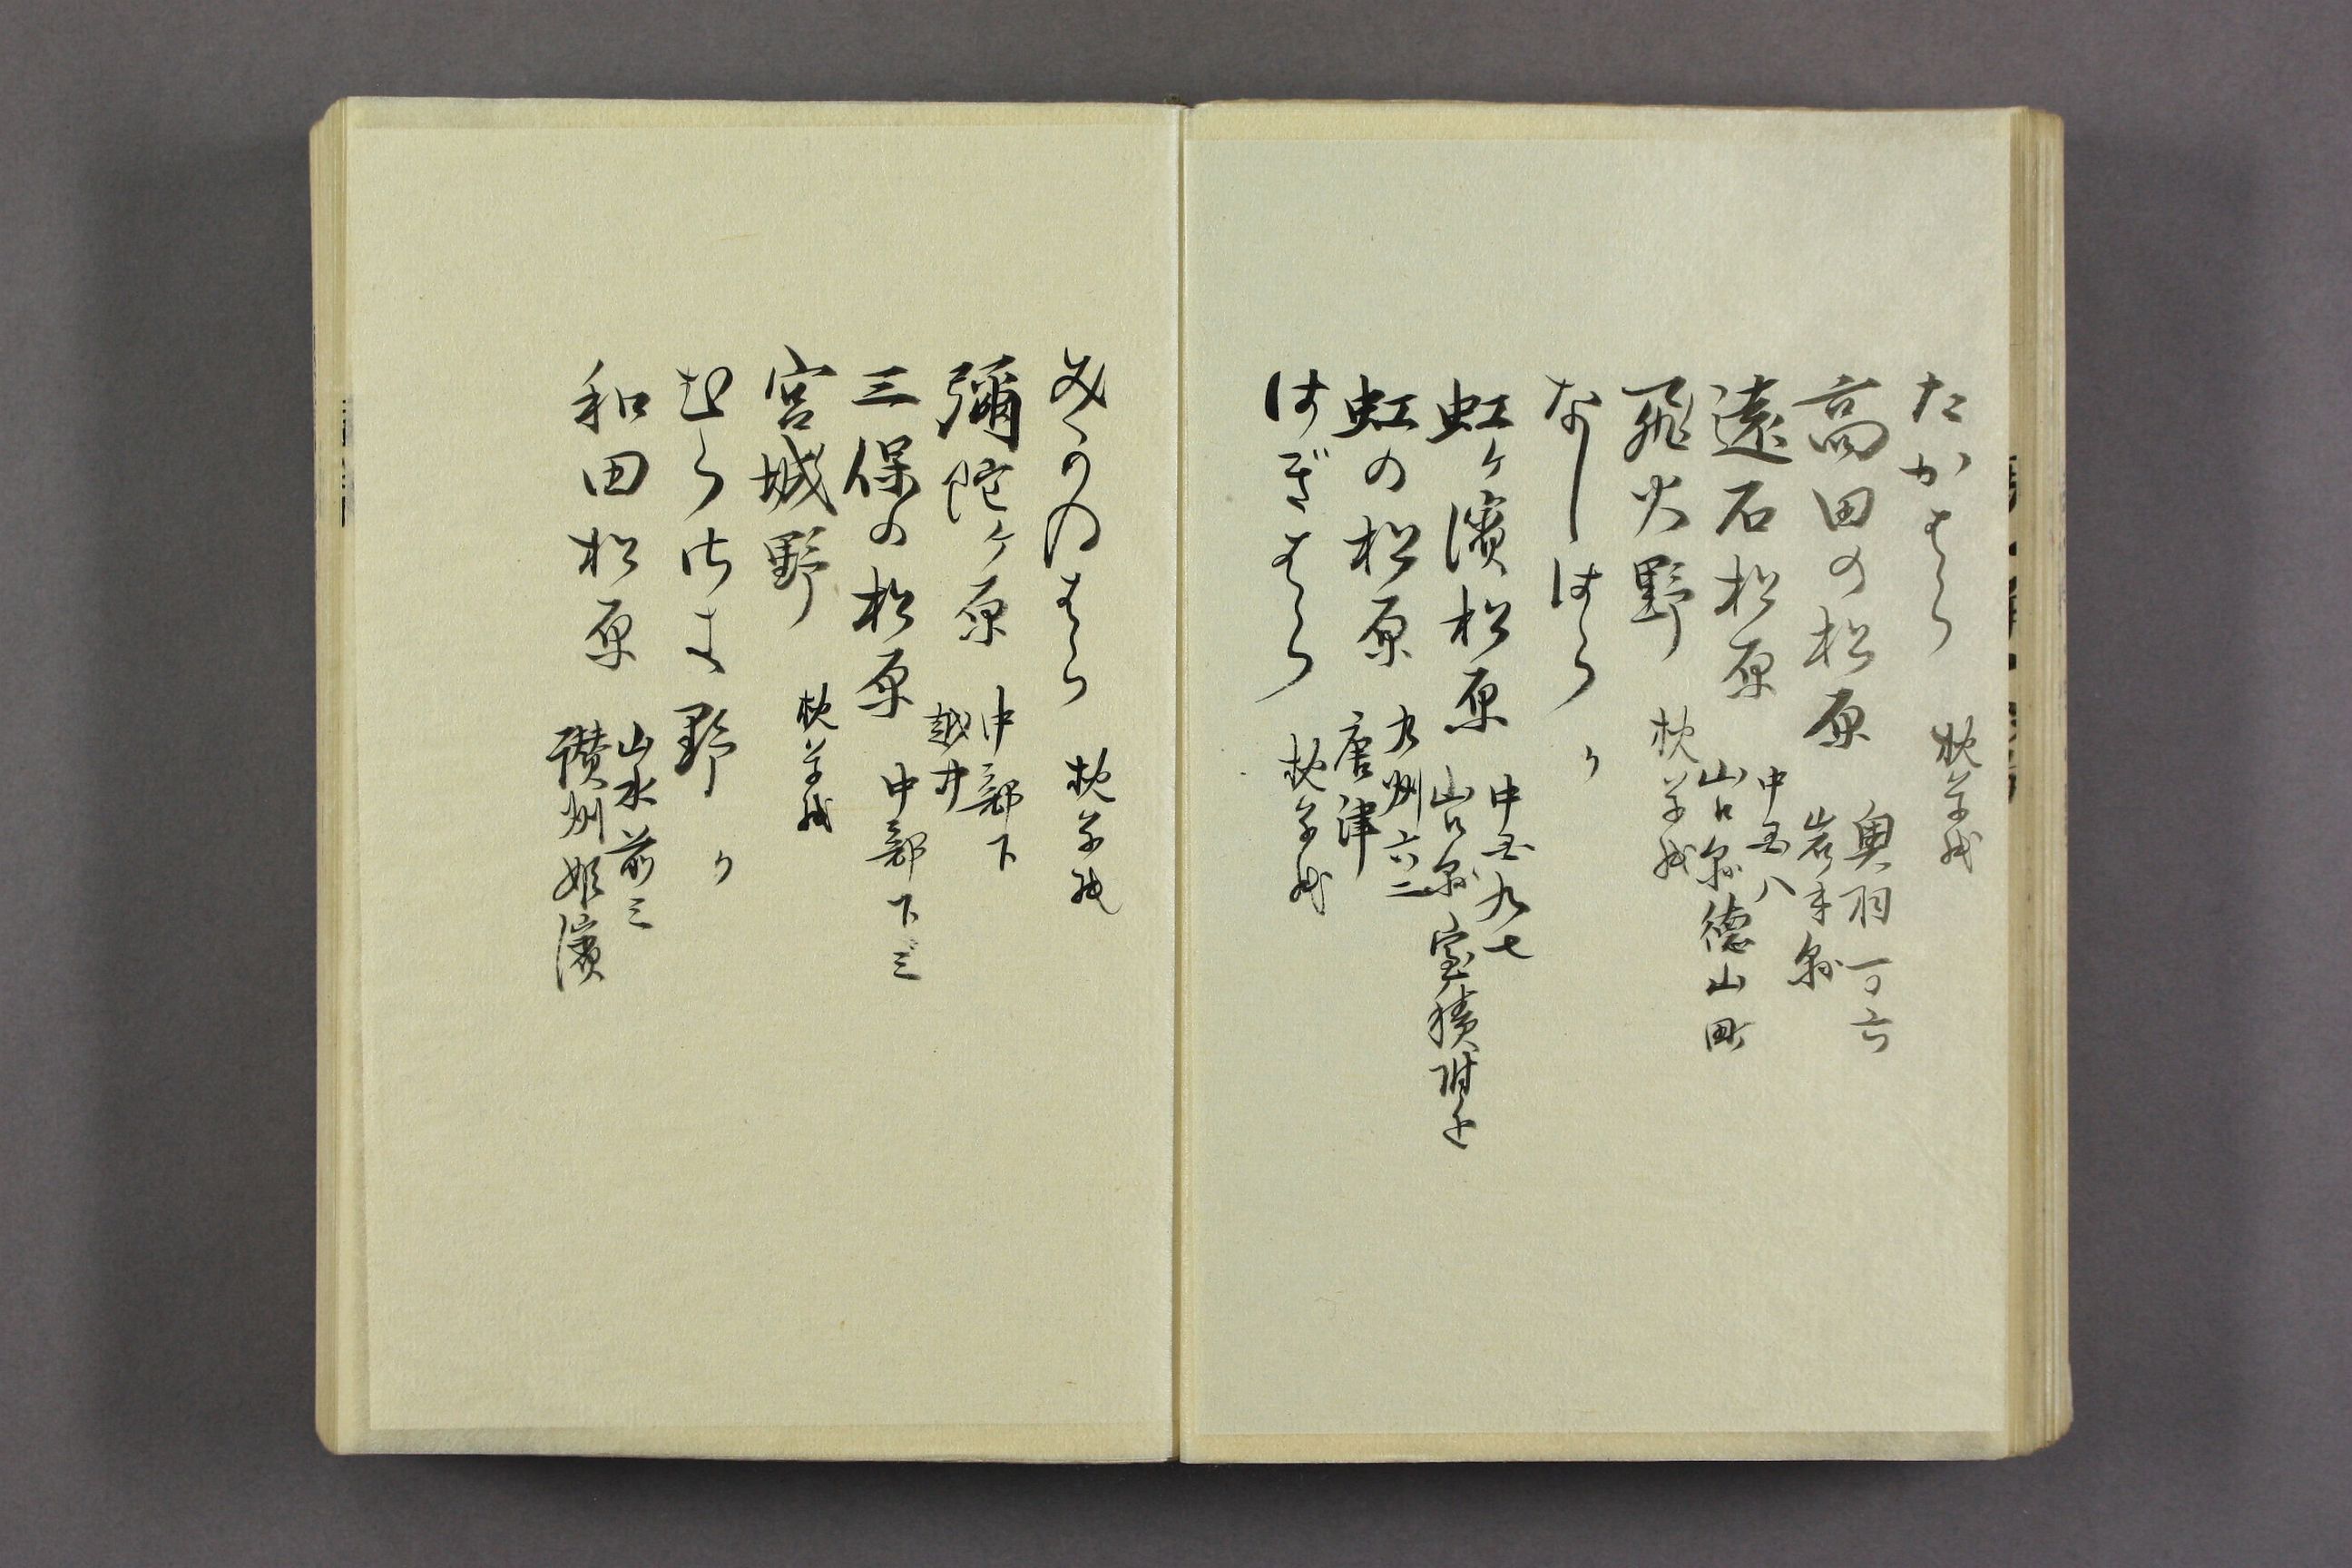 たかはら 枕草紙
高田の松原 奥羽一ノ六
岩手縣
遠石松原 中国八
山口縣徳山町
飛火野 枕草紙
なしはら 〃
虹ヶ濱松原 中国九七
山口縣室積附近
虹の松原 九州六二
唐津
はぎはら 枕草紙
みかのはら 枕草紙
彌陀ヶ原 中部下
越中
三保の松原 中部下三
宮城野 枕草紙
むらさき野 〃
和田松原 山水前三
讃州姫濱